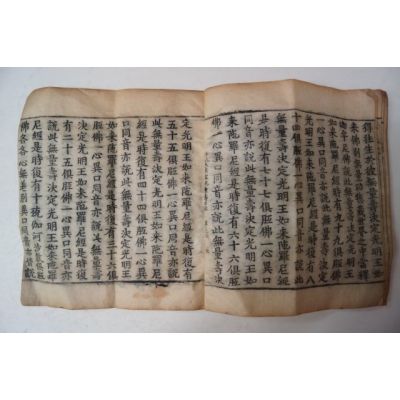 得往生於彼無量壽決定光明王如
來佛刹無量功德藏世界之中
尼佛復有九十九俱胝佛一
心異口同音亦說此無量壽決定
光明王如來陀羅尼經是時復有八
十四俱胝佛一心異口同音亦說此
無量壽決定光明王如來陀羅尼經
是時復有七十七俱胝佛一心異口
同音亦說此無量壽決定光明王如
來陀羅尼經是時復有六十六俱胝
佛一心異口同音亦說此無量壽決
定光明王如來陀羅尼經是時復有
五十五俱胝佛一心異口同音亦說
此無量壽決定光明王如來陀羅尼
經是時復有四十四俱胝佛一心異
口同音亦說此無量壽決定光明王
如來陀羅尼經是時復有三十六俱
胝佛一心異口同音亦說此無量壽
決定光明王如來陀羅尼經是時復
有二十五俱胝佛一心異口同音亦
說此無量壽決定光明王如來陀羅
尼經是時復有十殑伽河沙數俱胝
佛各各心無差別異口同音